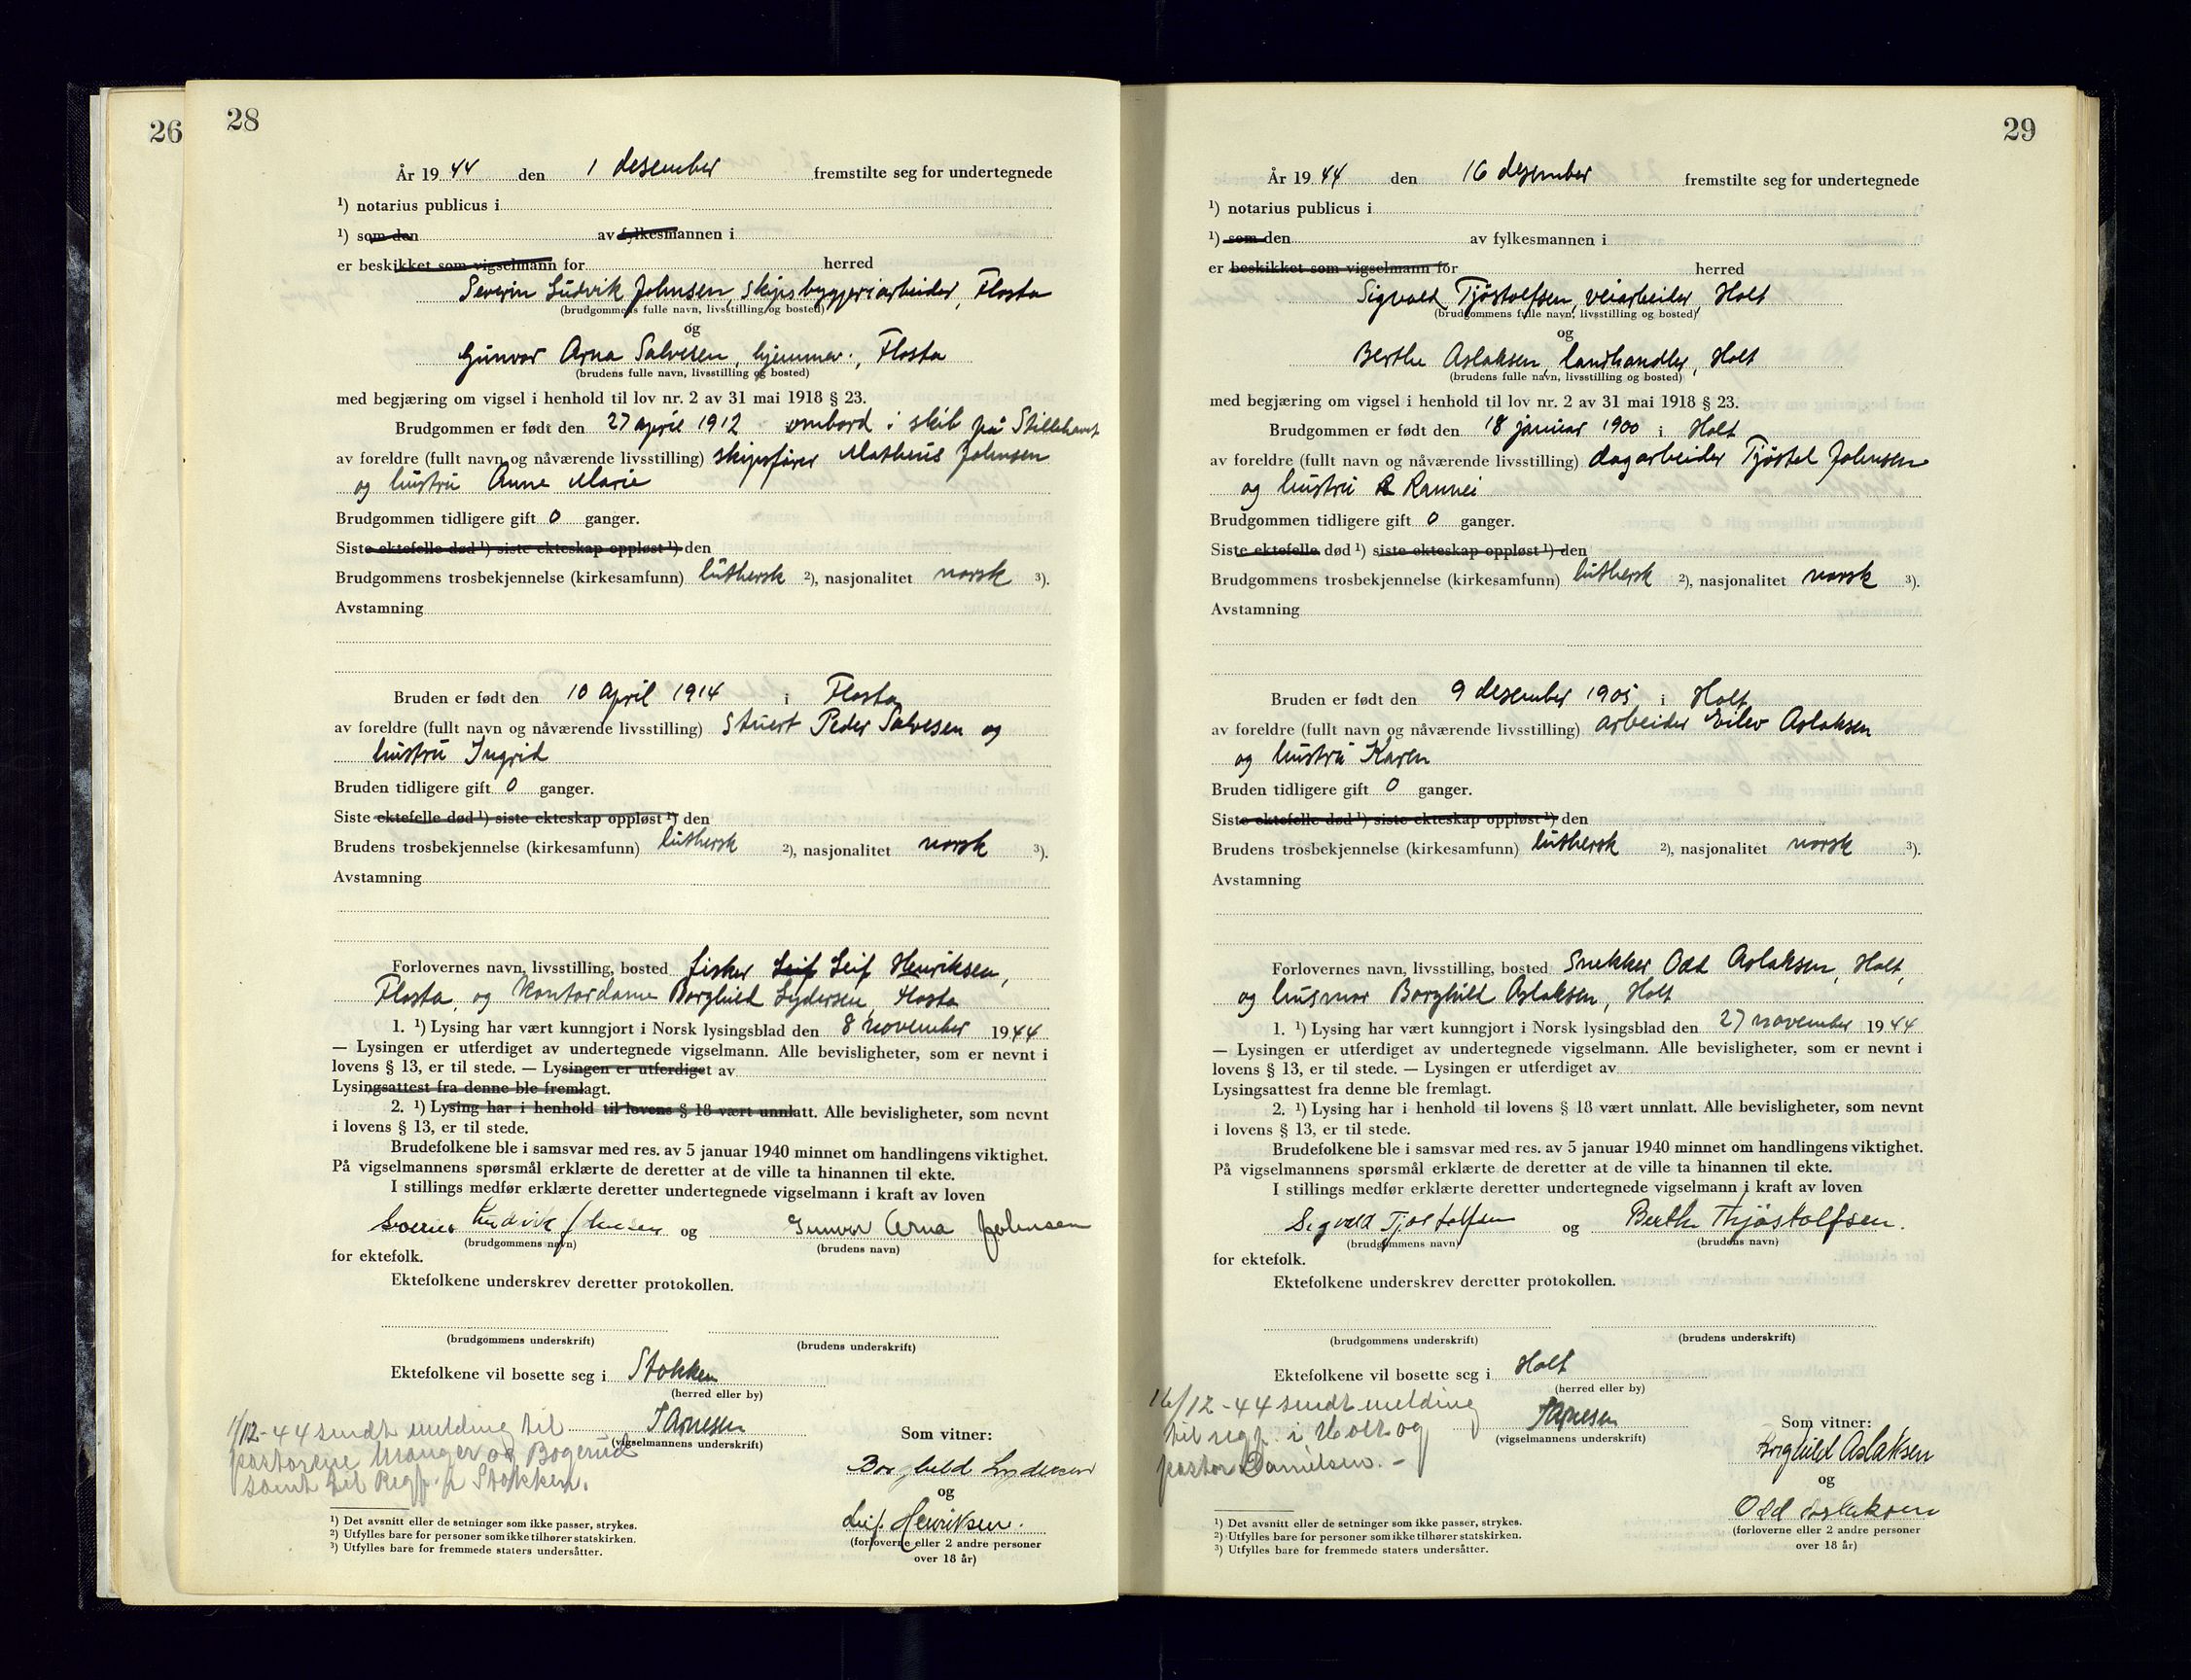 26
28
År 19 44 den 1 desember fremstilte seg for undertegnede
¹) notarius publicus i
¹) som den av fylkesmannen i
er beskikket som vigselmann for herred
Severin Ludvik Johnsen, skipsbyggeriarbeider, Flosta
(brudgommens fulle navn, livsstilling og bosted)
og
Gunvor Arna Salvesen, hjemmev., Flosta
(brudens fulle navn, livsstilling og bosted)
med begjæring om vigsel i henhold til lov nr. 2 av 31 mai 1918 § 23.
Brudgommen er født den 27 april 1912 ombord i skib på Stillehavet
av foreldre (fullt navn og nåværende livsstilling) skipsfører Matheus Johnsen
og hustru Anne Marie
Brudgommen tidligere gift 0 ganger.
Siste ektefelle død ¹) siste ekteskap oppløst ¹) den
Brudgommens trosbekjennelse (kirkesamfunn) luthersk ²), nasjonalitet norsk ³).
Avstamning
Bruden er født den 10 april 1914 i Flosta
av foreldre (fullt navn og nåværende livsstilling) Stuert Peder Salvesen og
hustru Ingrid
Bruden tidligere gift 0 ganger.
Siste ektefelle død ¹) siste ekteskap oppløst ¹) den
Brudens trosbekjennelse (kirkesamfunn) luthersk ²), nasjonalitet norsk ³).
Avstamning
Forlovernes navn, livsstilling, bosted fisker Leif Leif Henriksen,
Flosta, og Kontordame Borghild Lydersen, Flosta
1. ¹) Lysing har vært kunngjort i Norsk lysingsblad den 8 november 1944
— Lysingen er utferdiget av undertegnede vigselmann. Alle bevisligheter, som er nevnt i
lovens § 13, er til stede. — Lysingen er utferdiget av
Lysingsattest fra denne ble fremlagt.
2. ¹) Lysing har i henhold til lovens § 18 vært unnlatt. Alle bevisligheter, som nevnt
i lovens § 13, er til stede.
Brudefolkene ble i samsvar med res. av 5 januar 1940 minnet om handlingens viktighet.
På vigselmannens spørsmål erklærte de deretter at de ville ta hinannen til ekte.
I stillings medfør erklærte deretter undertegnede vigselmann i kraft av loven
Severin Ludvik Johnsen og Gunvor Arna Johnsen
(brudgommens navn) (brudens navn)
for ektefolk.
Ektefolkene underskrev deretter protokollen.
(brudgommens underskrift) (brudens underskrift)
Ektefolkene vil bosette seg i Stokken
(herred eller by)
1/12-44 sendt melding til
pastorene Manger og Bogerud
samt til Regf. i Stokken.
(vigselmannens underskrift)
Som vitner:
Borghild Lydersen
og
Leif Henriksen.
(forloverne eller 2 andre personer
over 18 år)
¹) Det avsnitt eller de setninger som ikke passer, strykes.
²) Utfylles bare for personer som ikke tilhører statskirken.
³) Utfylles bare for fremmede staters undersåtter.
29
År 19 44 den 16 desember fremstilte seg for undertegnede
¹) notarius publicus i
¹) som den av fylkesmannen i
er beskikket som vigselmann for herred
Sigvald Tjöstolfsen, veiarbeider, Holt
(brudgommens fulle navn, livsstilling og bosted)
og
Berthe Aslaksen, landhandler, Holt
(brudens fulle navn, livsstilling og bosted)
med begjæring om vigsel i henhold til lov nr. 2 av 31 mai 1918 § 23.
Brudgommen er født den 18 januar 1900 i Holt
av foreldre (fullt navn og nåværende livsstilling) dagarbeider Tjöstel Johnsen
og hustru R Rannei
Brudgommen tidligere gift 0 ganger.
Siste ektefelle død ¹) siste ekteskap oppløst ¹) den
Brudgommens trosbekjennelse (kirkesamfunn) luthersk ²), nasjonalitet norsk ³).
Avstamning
Bruden er født den 9 desember 1905 i Holt
av foreldre (fullt navn og nåværende livsstilling) arbeider Eilev Aslaksen
og hustru Karen
Bruden tidligere gift 0 ganger.
Siste ektefelle død ¹) siste ekteskap oppløst ¹) den
Brudens trosbekjennelse (kirkesamfunn) luthersk ²), nasjonalitet norsk ³).
Avstamning
Forlovernes navn, livsstilling, bosted Snekker Odd Aslaksen, Holt,
og husmor Borghild Aslaksen, Holt
1. ¹) Lysing har vært kunngjort i Norsk lysingsblad den 27 november 1944
— Lysingen er utferdiget av undertegnede vigselmann. Alle bevisligheter, som er nevnt i
lovens § 13, er til stede. — Lysingen er utferdiget av
Lysingsattest fra denne ble fremlagt.
2. ¹) Lysing har i henhold til lovens § 18 vært unnlatt. Alle bevisligheter, som nevnt
i lovens § 13, er til stede.
Brudefolkene ble i samsvar med res. av 5 januar 1940 minnet om handlingens viktighet.
På vigselmannens spørsmål erklærte de deretter at de ville ta hinannen til ekte.
I stillings medfør erklærte deretter undertegnede vigselmann i kraft av loven
Sigvald Tjøstolfsen og Berthe Thjøstolfsen.
(brudgommens navn) (brudens navn)
for ektefolk.
Ektefolkene underskrev deretter protokollen.
(brudgommens underskrift) (brudens underskrift)
Ektefolkene vil bosette seg i Holt
(herred eller by)
16/12-44 sendt melding
til regf. i Holt og
pastor Danielsen.-
(vigselmannens underskrift)
Som vitner:
Borghild Aslaksen
og
Odd Aslaksen
(forloverne eller 2 andre personer
over 18 år)
¹) Det avsnitt eller de setninger som ikke passer, strykes.
²) Utfylles bare for personer som ikke tilhører statskirken.
³) Utfylles bare for fremmede staters undersåtter.